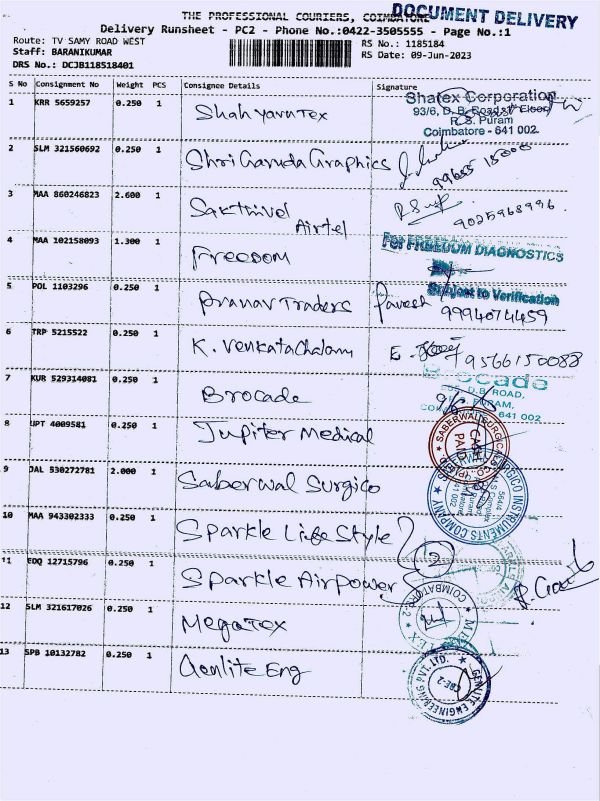 THE PROFESSIONAL COURIERS, COIMBATORE
DOCUMENT DELIVERY
Delivery Runsheet - PC2 - Phone No.:0422-3505555 - Page No.:1
Route: TV SAMY ROAD WEST
RS No.: 1185184
Staff: BARANIKUMAR
RS Date: 09-Jun-2023
DRS No.: DCJB118518401
S No Consignment No Weight PCS Consignee Details Signature
1 KRR 5659257 0.250 1 Shah yarntex
Shatex Corporation
93/6, D. B. Road, (1st Floor)
R. S. Puram
Coimbatore - 641 002.
2 SLM 321560692 0.250 1 Shri Garuda Graphics
99655 15000
3 MAA 860246823 2.600 1 Sakthivel Airtel
9025968996.
4 MAA 102158093 1.300 1 Freedom
For FREEDOM DIAGNOSTICS
Subject to Verification
5 POL 1103296 0.250 1 Pranav Traders Pavesh
9994074459
6 TRP 5215522 0.250 1 K. Venkatachalam E.
9566150088
7 KUR 529314081 0.250 1 Brocade
Brocade
D.B. ROAD,
R.S. PURAM,
641 002
8 UPT 4009581 0.250 1 Jupiter Medical
9 JAL 530272781 2.000 1 Saberwal Surgico
SURGICO INSTRUMENTS COMPANY
10 MAA 943302333 0.250 1 Sparkle Life Style
2
11 EDQ 12715796 0.250 1 Sparkle Airpower
12 SLM 321617026 0.250 1 Megatex
COIMBATORE-2
13 SPB 10132782 0.250 1 Genlite Eng
GENLITE ENGINEERING PVT. LTD.
CBE-2